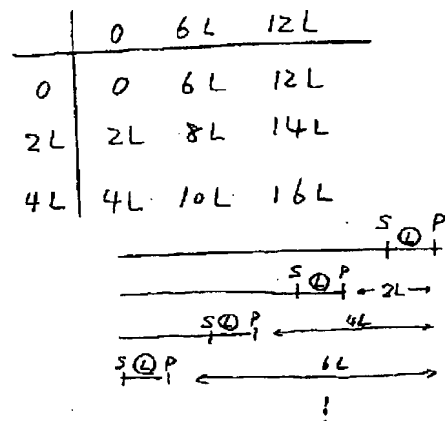 0 6L 12L
0 0 6L 12L
2L 2L 8L 14L
4L 4L 10L 16L
S Ⓛ P
S Ⓛ P 2L
S Ⓛ P 4L
S Ⓛ P 6L